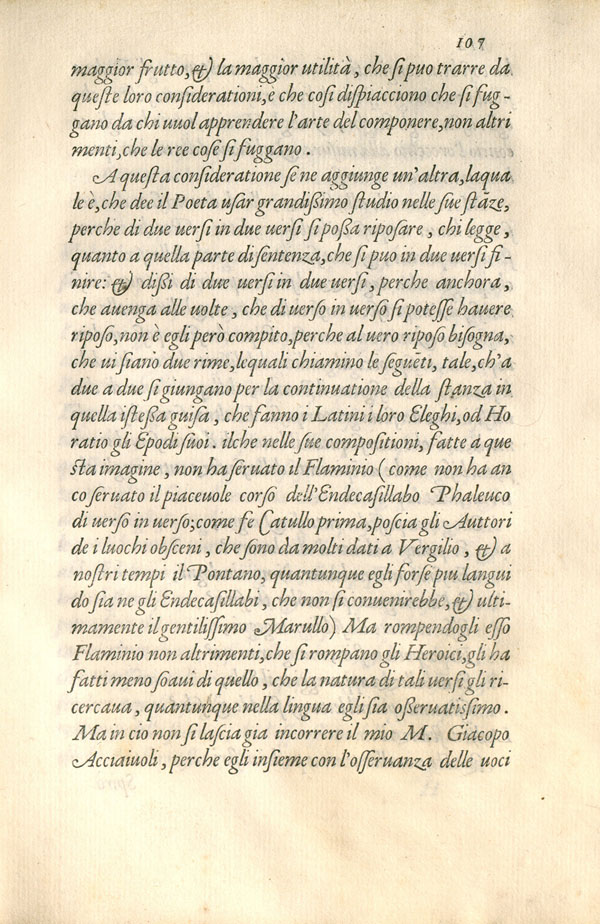 107
maggior frutto, & la maggior utilità, che si puo trarre da
queste loro considerationi, è che cosi dispiacciono che si fug-
gano da chi uuol apprendere l'arte del componere, non altri
menti, che le ree cose si fuggano.
A questa consideratione se ne aggiunge un'altra, laqua
le è, che dee il Poeta usar grandißimo studio nelle sue stãze,
perche di due uersi in due uersi si poßa riposare, chi legge,
quanto a quella parte di sentenza, che si puo in due uersi fi-
nire: & dißi di due uersi in due uersi, perche anchora,
che auenga alle uolte, che di uerso in uerso si potesse hauere
riposo, non è egli però compito, perche al uero riposo bisogna,
che ui siano due rime, lequali chiamino le seguẽti, tale, ch'a
due a due si giungano per la continuatione della stanza in
quella isteßa guisa, che fanno i Latini i loro Eleghi, od Ho
ratio gli Epodi suoi. ilche nelle sue compositioni, fatte à que
sta imagine, non ha seruato il Flaminio (come non ha an
co seruato il piaceuole corso dell'Endecasillabo Phaleuco
di uerso in uerso; come fe Catullo prima, poscia gli Auttori
de i luochi obsceni, che sono da molti dati a Vergilio, & a
nostri tempi il Pontano, quantunque egli forse piu langui
do sia ne gli Endecasillabi, che non si conuenirebbe, & ulti-
mamente il gentilissimo Marullo) Ma rompendogli esso
Flaminio non altrimenti, che si rompano gli Heroici, gli ha
fatti meno soaui di quello, che la natura di tali uersi gli ri-
cercaua, quantunque nella lingua egli sia oßeruatissimo.
Ma in cio non si lascia gia incorrere il mio M. Giacopo
Acciaiuoli, perche egli insieme con l'osseruanza delle uoci